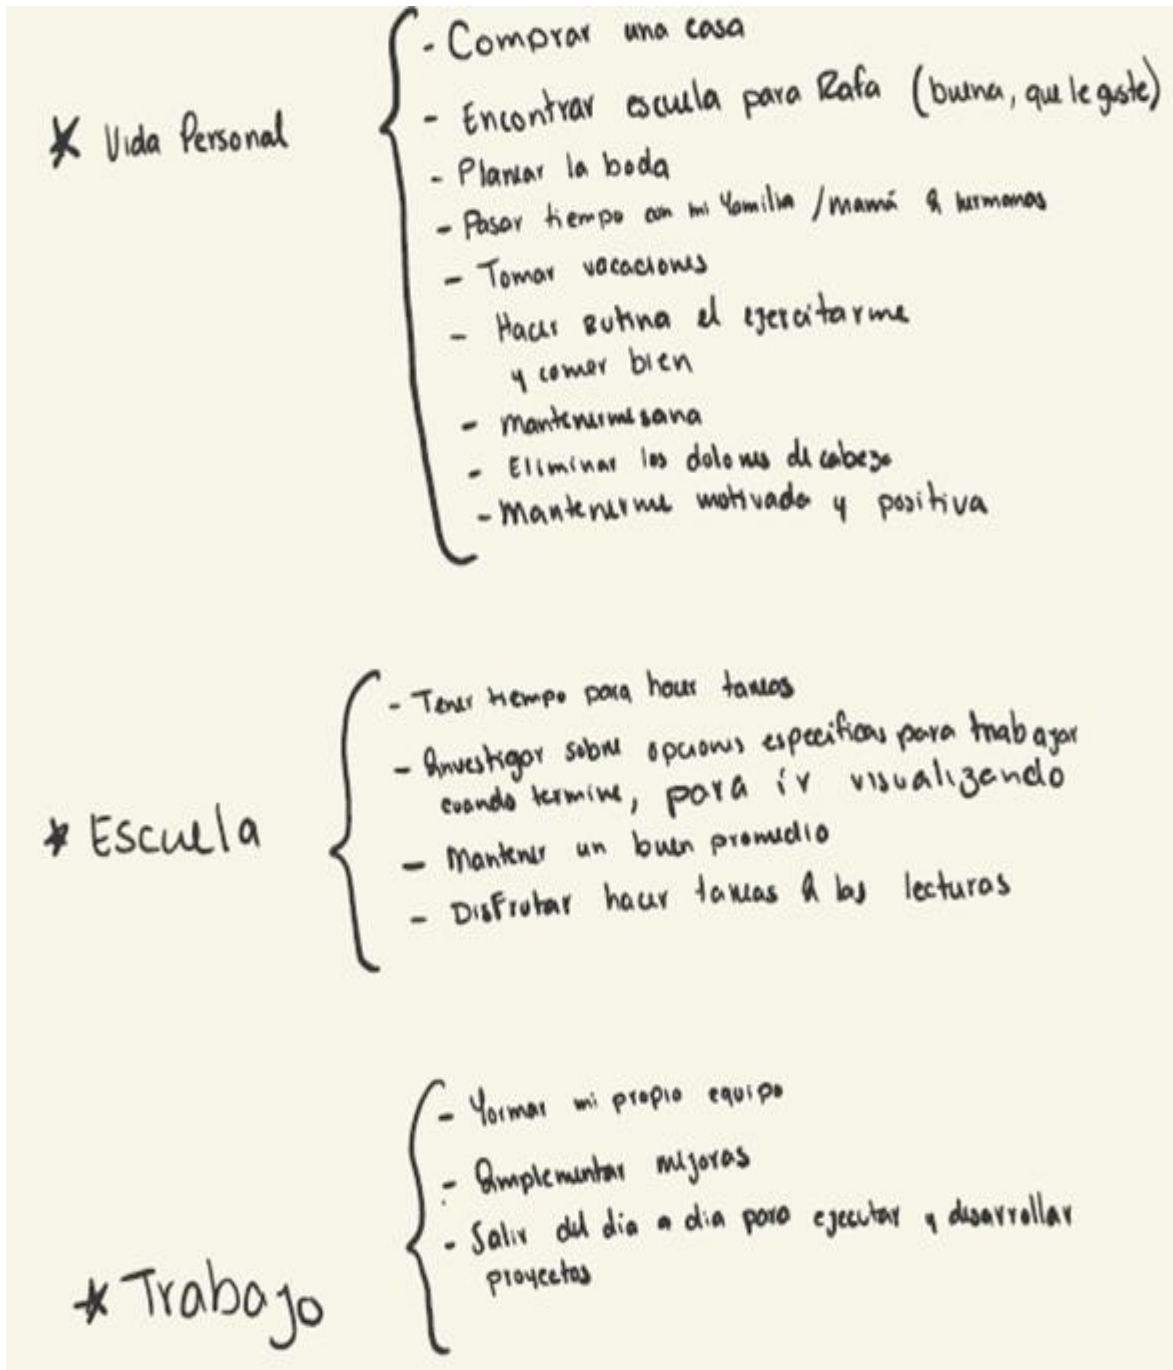 * Vida Personal
- Comprar una casa
- Encontrar escuela para Rafa (buena, que le guste)
- Planear la boda
- Pasar tiempo con mi familia / mamá & hermanas
- Tomar vacaciones
- Hacer Rutina el ejercitarme
y comer bien
- Mantenerme sana
- Eliminar los dolores de cabeza
- Mantenerme motivada y positiva
* Escuela
- Tener tiempo para hacer tareas
- Investigar sobre opciones especificas para trabajar
cuando termine, para ir visualizando
- Mantener un buen promedio
- Disfrutar hacer tareas & las lecturas
* Trabajo
- Formar mi propio equipo
- Implementar mejoras
- Salir del dia a dia para ejecutar y desarrollar
proyectos